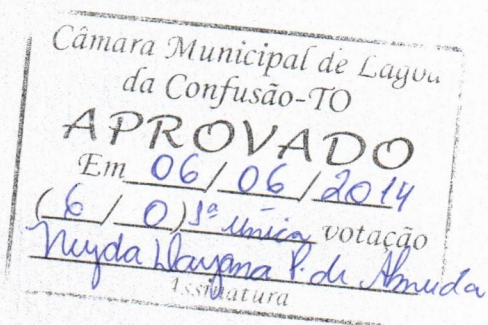 Câmara Municipal de Lagoa
da Confusão-TO
APROVADO
Em 06/06/2014
(6/0) 1ª única votação
Neyda Dayana P. de Almeida
Assinatura